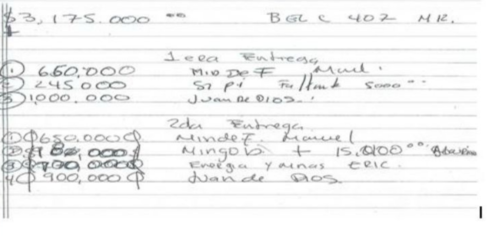 $3,175.000 °° BGL C 402 MR.
1era Entrega
① 650.000 Mio De F Manl.
② 245000 Faltante 5000 °°
③ 1000.000 Juan De Dios.
2da Entrega
① 650,000 Mindez. Manuel
Mingo + 15,000 °°
③ 700 000 Energia y Minas ERIC.
4 900,000 Juan de Dios.